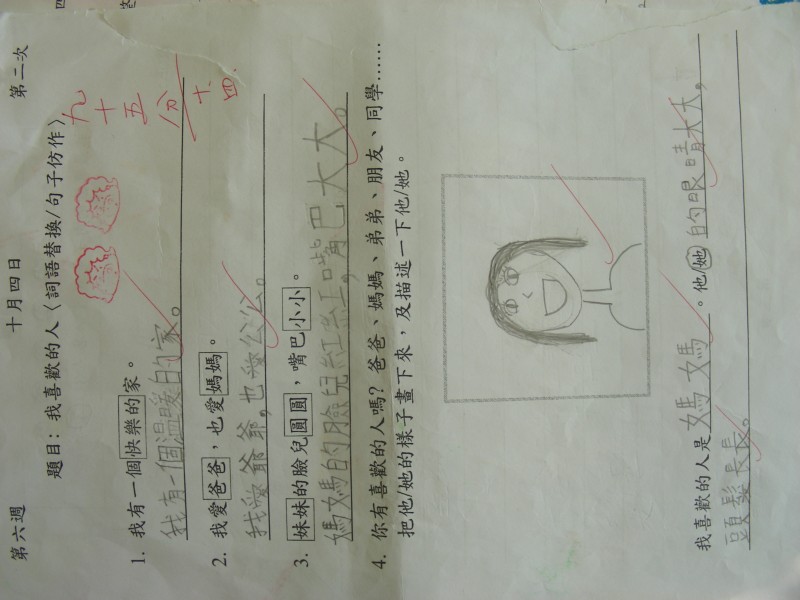 第六週 十月四日 第二次
題目：我喜歡的人〈詞語替換/句子仿作〉
九十五分
十.四.
1. 我有一個快樂的家。
我有一個溫暖的家。
2. 我愛爸爸，也愛媽媽。
我愛爺爺，也愛公公。
3. 妹妹的臉兒圓圓，嘴巴小小。
媽媽的臉兒紅紅，嘴巴大大。
4. 你有喜歡的人嗎？爸爸、媽媽、弟弟、朋友、同學……
把他/她的樣子畫下來，及描述一下他/她。
我喜歡的人是媽媽。他/她的眼睛大大，
頭髮長長。